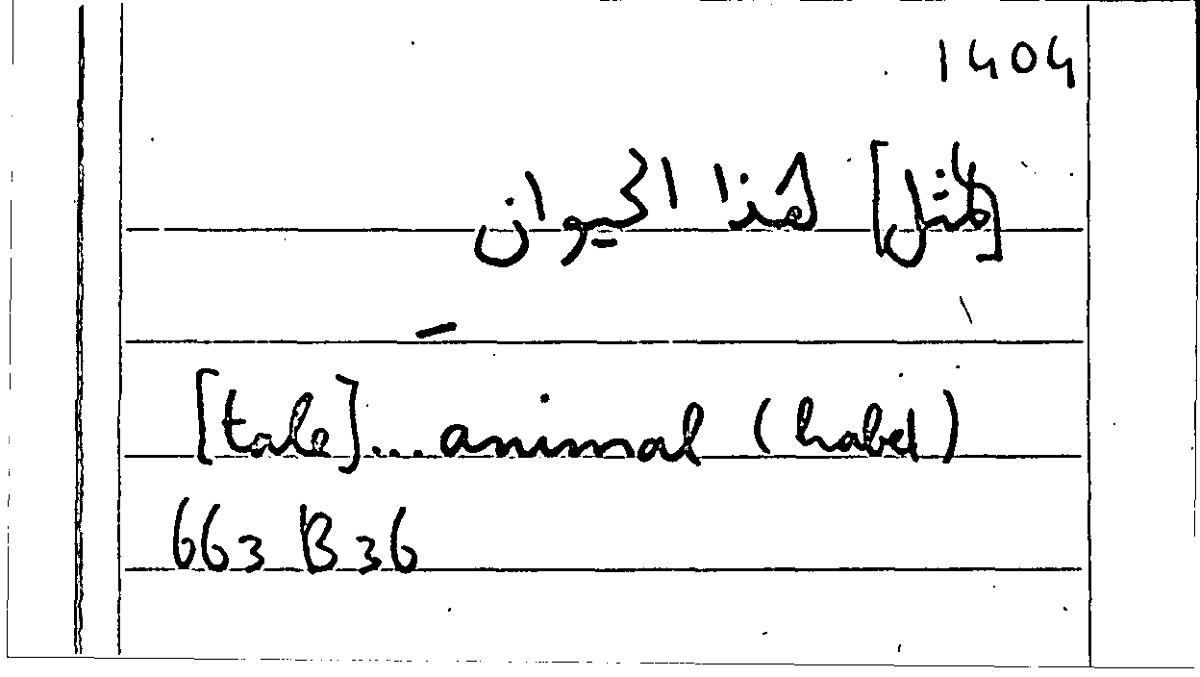 1404
[مثل] هذا الحيوان
[tale]... animal (habel)
663 B 36